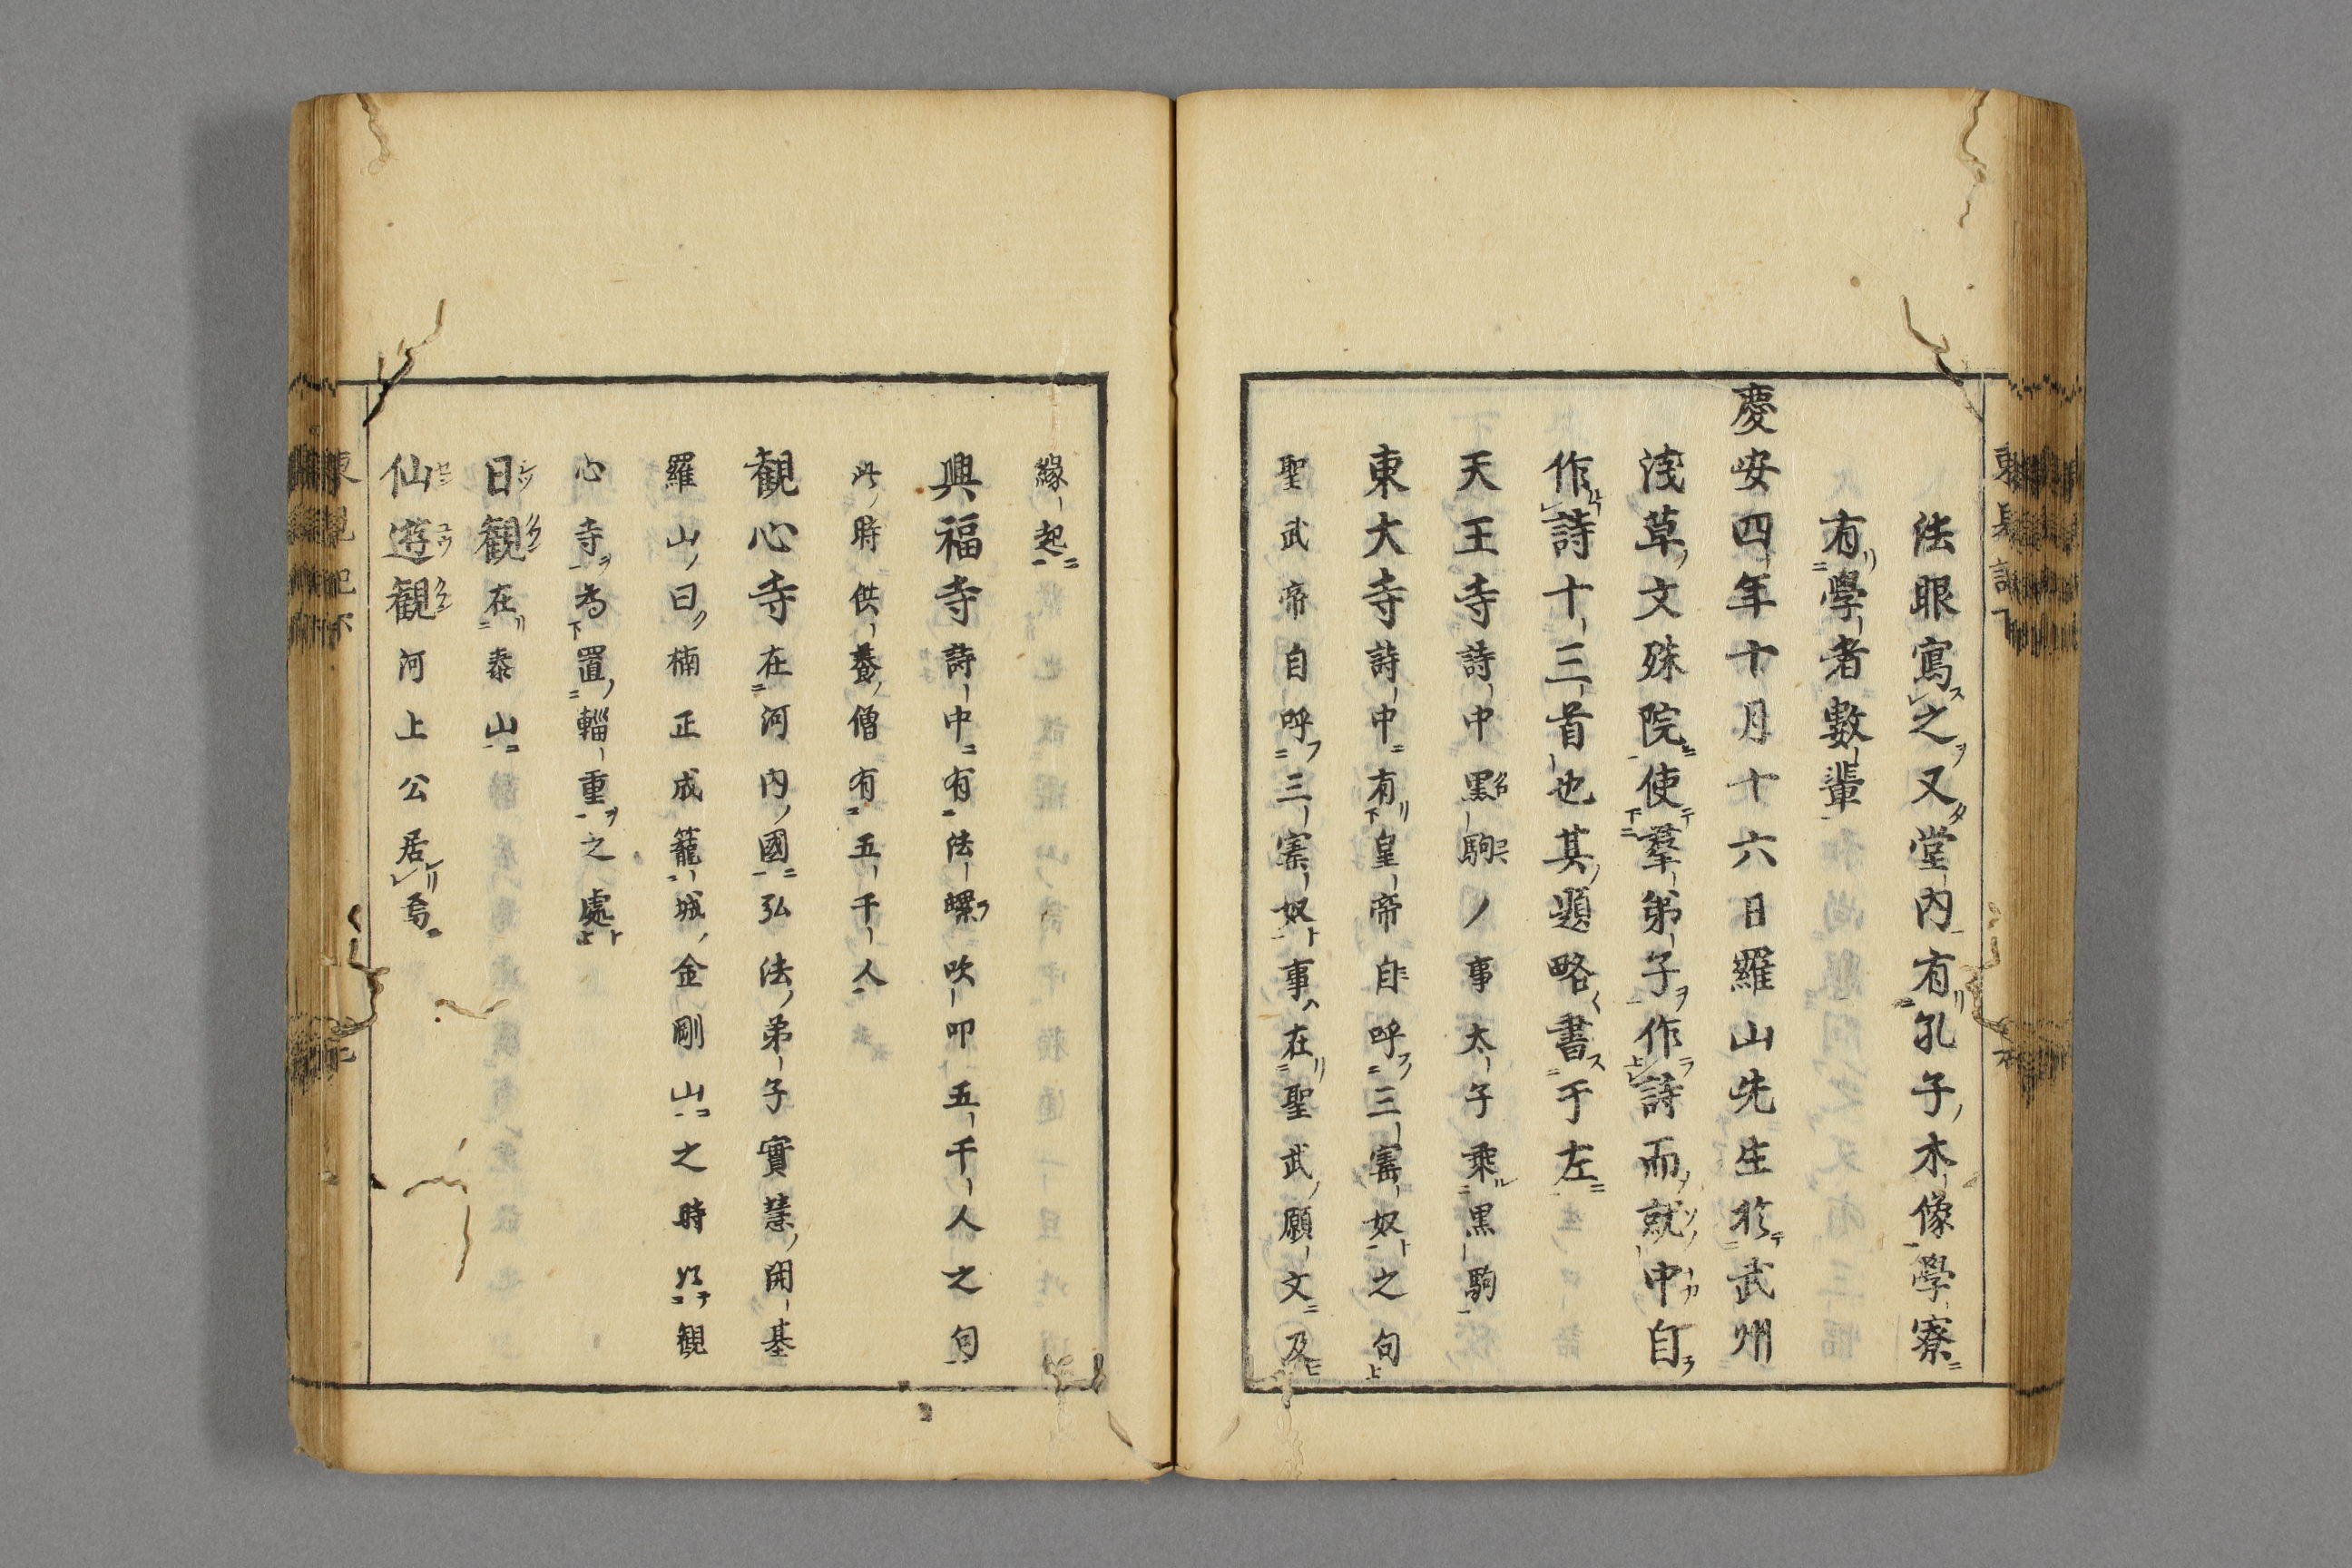 法眼寫之又堂内有孔子木像學寮
有學者數輩
慶安四年十月十六日羅山先生於武州
淺草文殊院使羣弟子作詩而就中自
作詩十三首也其題略書于左
天王寺詩中黒駒ノ事太子乘黒駒
東大寺詩中有皇帝自呼三寶奴之句
聖武帝自呼三寶奴事在聖武願文及
縁起
興福寺詩中有法螺吹叩五千人之句
此時供養僧有五千人
観心寺在河内國弘法弟子實慧開基
羅山曰楠正成籠城金剛山之時以観
心寺為置輜重之處
日観在泰山
仙遊観河上公居焉